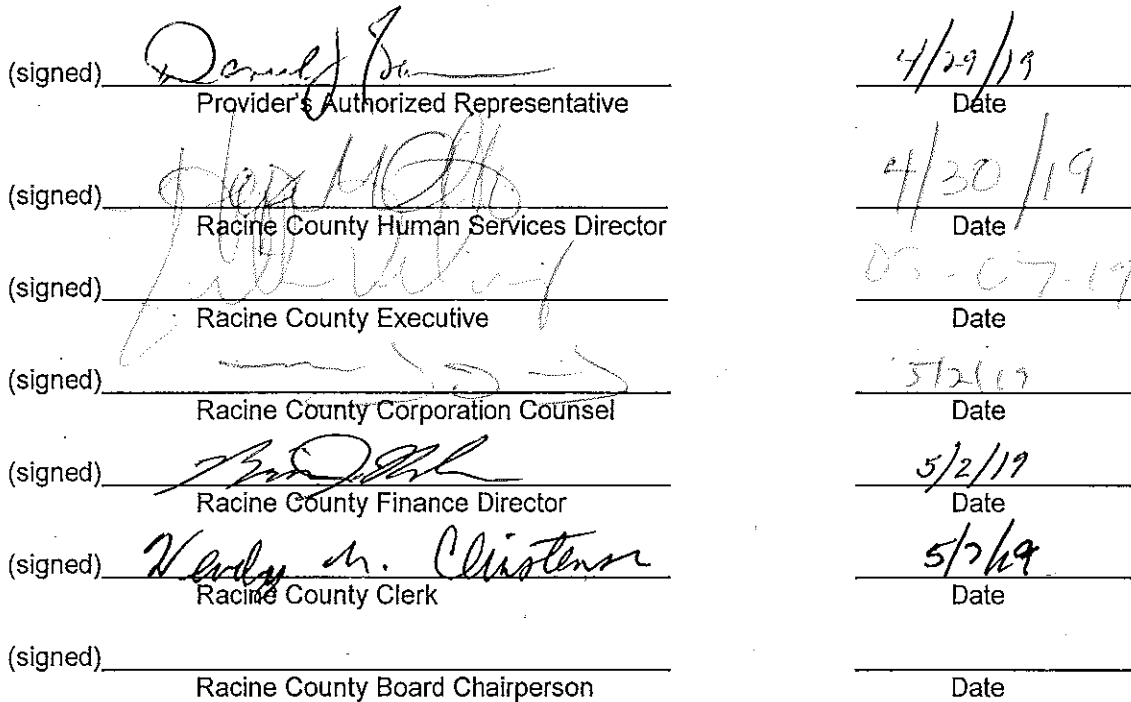 (signed) Daniel J 4/29/19
Provider's Authorized Representative Date
(signed) 4/30/19
Racine County Human Services Director Date
(signed) 05-07-19
Racine County Executive Date
(signed) 5/2/19
Racine County Corporation Counsel Date
(signed) 5/2/19
Racine County Finance Director Date
(signed) Wendy M. Christensen 5/7/19
Racine County Clerk Date
(signed)
Racine County Board Chairperson Date